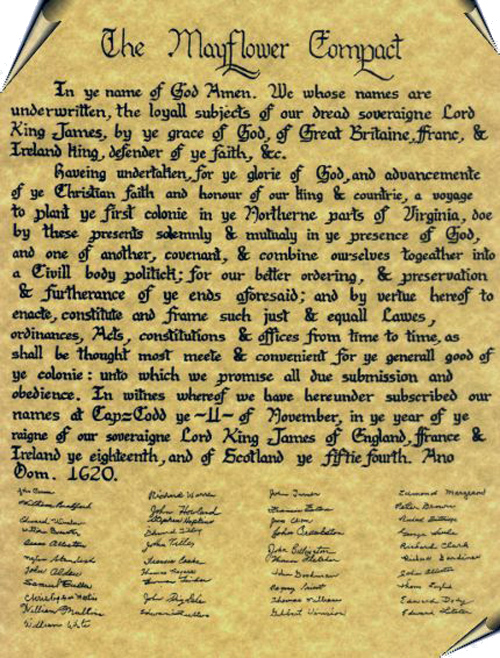 The Mayflower Compact
In ye name of God Amen. We whose names are
underwritten, the loyall subjects of our dread soveraigne Lord
King James, by ye grace of God, of Great Britaine, ffranc, &
Ireland king, defender of ye faith, &c.
Haveing undertaken, for ye glorie of God, and advancemente
of ye Christian faith and honour of our king & countrie, a voyage
to plant ye first colonie in ye Northerne parts of Virginia, doe
by these presents solemnly & mutualy in ye presence of God,
and one of another, covenant, & combine ourselves togeather into
a Civill body politick; for our better ordering, & preservation
& furtherance of ye ends aforesaid; and by vertue hereof to
enacte, constitute and frame such just & equall Lawes,
ordinances, Acts, constitutions & offices from time to time, as
shall be thought most meete & convenient for ye generall good of
ye colonie: unto which we promise all due submission and
obedience. In witnes whereof we have hereunder subscribed our
names at Cap=Codd ye ~11~ of November, in ye year of ye
raigne of our soveraigne Lord King James of England, ffrance &
Ireland ye eighteenth, and of Scotland ye fiftie fourth. Ano
Dom. 1620.
John Carver
William Bradford
Edward Winslow
Isaac Allerton
John Alden
Samuel Fuller
William Mullins
William White
Richard Warren
John Howland
Stephen Hopkins
Edward Tilley
John Tilley
Francis Cooke
John Rigdale
John Turner
Francis Eaton
John Crackston
John Billington
John Goodman
Thomas Williams
Gilbert Winslow
Edmund Margeson
Peter Brown
George Soule
Richard Clark
John Allerton
Edward Doty